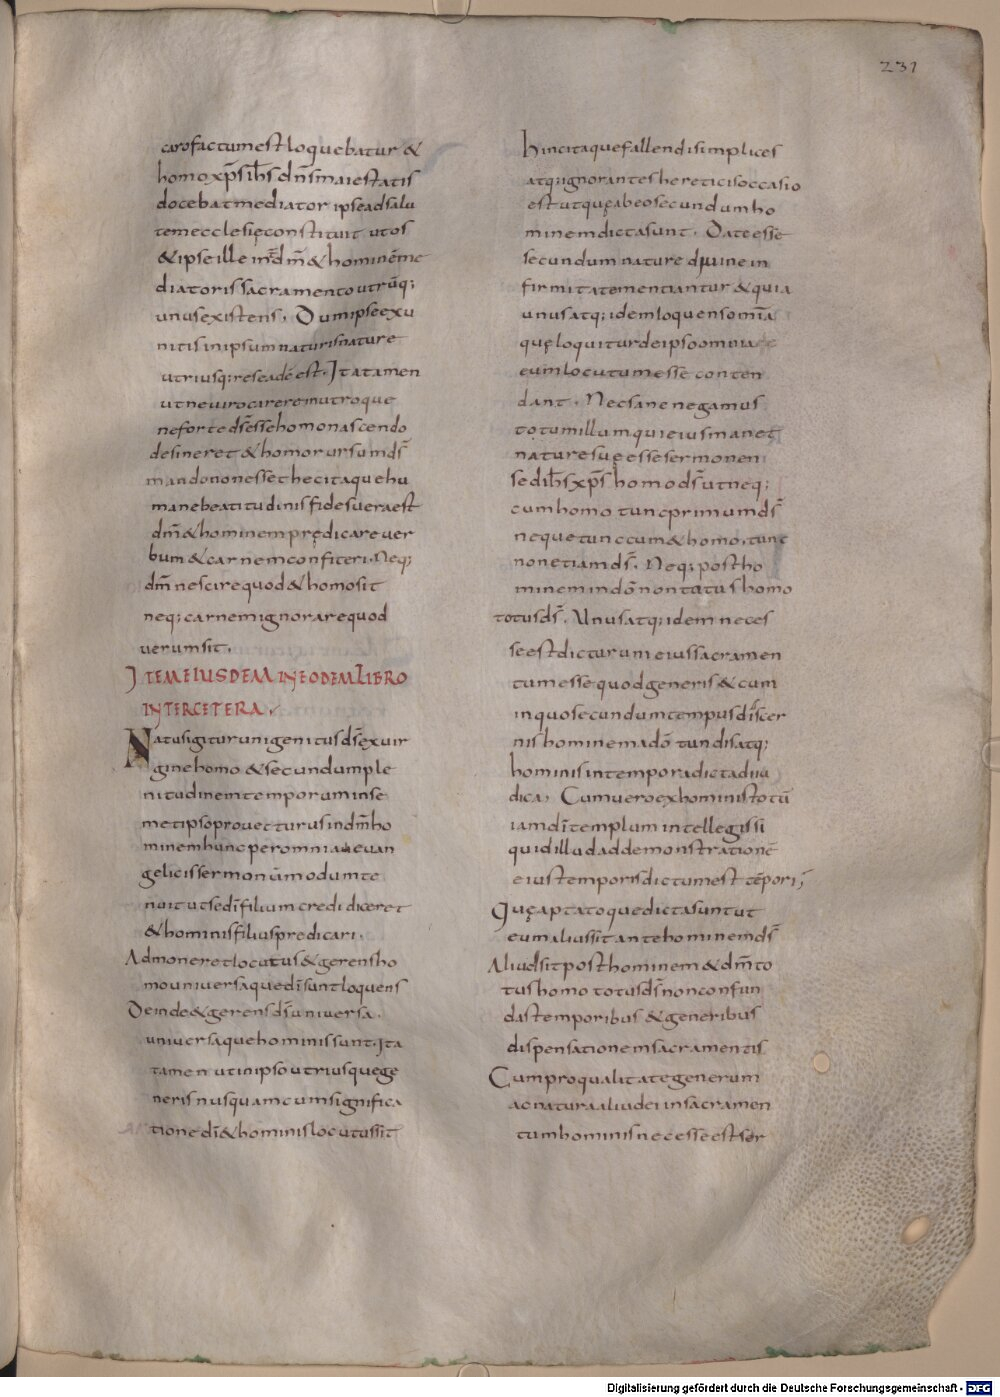 231
caro factum est loquebatur &
homo xp̄s ih̄s dn̄s maiestatis
docebat mediator ipse ad salu
tem ecclesię constitutit utos
& ipse ille int̄ dm̄ & hominē me
diatoris sacramento utrūq;
unus existens. Dum ipse exu
nitis in ipsum naturis nature
utriusq; res eadē est. Ita tamen
ut ne uirocareremutroque
ne forte ds̄ esse homo nascendo
desineret & homo rursum ds̄
mandononesset hec itaque hu
mane beatitudinis fides uera est
dm̄ & hominem prędicare uer
bum & carnem confiteri. Neq;
dm̄ nescire quod & homo sit
neq; carnem ignorare quod
uerum sit.
ITEM EIUSDEM IN EODEM LIBRO
INTER CETERA
Natus igitur unigenitus ds̄ ex uir
gine homo & secundum ple
nitudinem temporum in se
metipso prouecturus in dm̄ ho
minem hunc per omnia euan
gelicis sermonūm odum te
nuit ut se dī filium credi diceret
& hominis filius predicari.
Admoneret locutus & gerens ho
mo uniuersa que dī sunt loquens
Deinde & gerens ds̄ uniuersa.
uniuersa que hominis sunt. Ita
tamen ut in ipso utriusque ge
neris nusquam cum significa
tione dī & hominis locutus sit
Hinc itaque fallendi simplices
atq; ignorantes hereticis occasio
est ut quę ab eo secundum ho
minem dicta sunt. Date esse
secundum nature diuine in
firmitate mentiantur & quia
unus atq; idem loquens omīa
quę loquitur de ipso omnia
eum locutum esse conten
dant. Nec sane negamus
totum illum qui eius manet
nature suę esse sermonem
sed ih̄s xp̄s homo ds̄ ut neq;
cum homo tunc primum ds̄
neque tunc cum & homo, tunc
non etiam ds̄. Neq; post ho
minem in dō non totus homo
totus ds̄. Unus atq; idem neces
se est dictorum eius sacramen
tum esse quod generis & cum
in quo secundum tempus discer
nis hominem a dō tundis atq;
hominis in tempora dicta diiu
dica. Cum uero ex hominis totū
iam dī templum intellegissi
quid illud ad demonstrationē
eius temporis dictum est tēpori;
Quę aptato que dicta sunt ut
eum alius sit ante hominem ds̄
Aliud sit post hominem & dm̄ to
tus homo totus ds̄ non confun
das temporibus & generibus
dispensationem sacramentis
Cum pro qualitate generum
ac natura aliud ei in sacramen
tum hominis necesse est ser
Digitalisierung gefördert durch die Deutsche Forschungsgemeinschaft - DFG